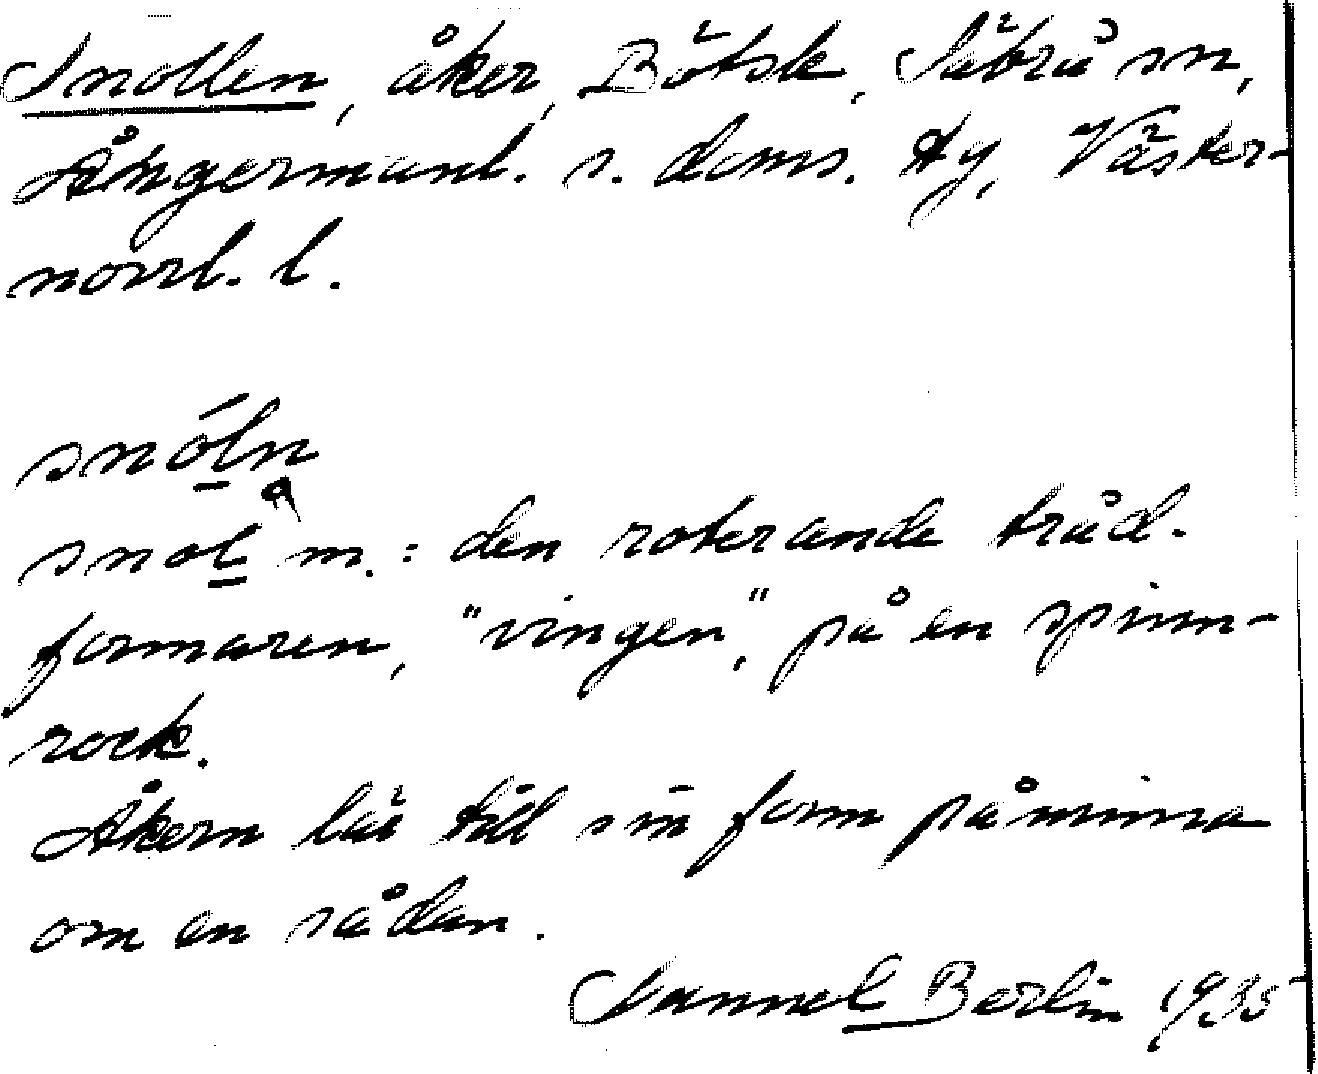 Snollen, åker, Bötsk, Säbrå sn,
Ångermanl. s. doms. tg, Väster-
norrl. l.
snóln
snol m.: den roterande tråd-
formaren, "vingen", på en spinn-
rock.
Åkern lär till sin form påminna
om en sådan.
Sannel Berlin 1935